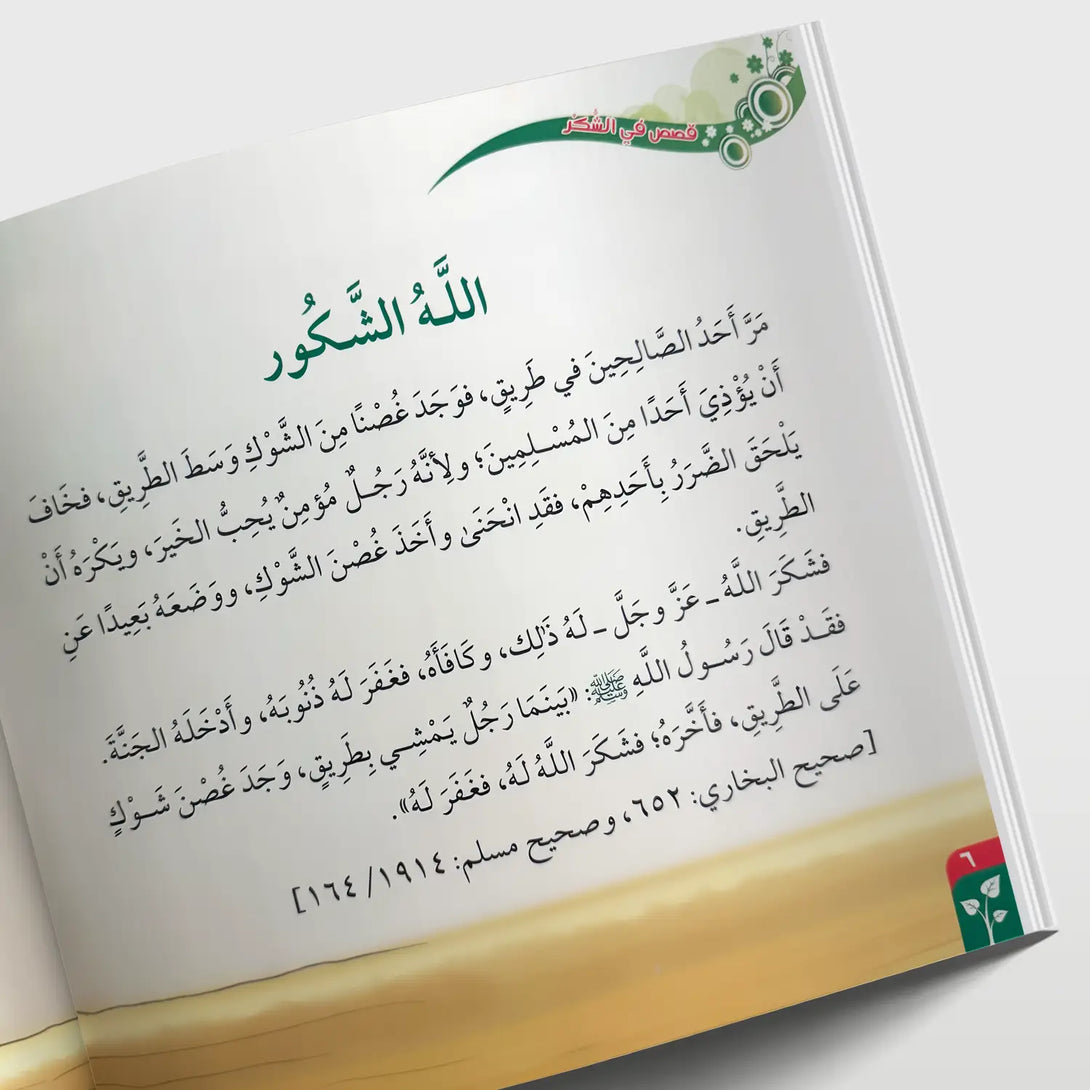 قصص في الشُّكْر
اللَّهُ الشَّكُور
مَرَّ أَحَدُ الصَّالِحِينَ في طَرِيقٍ، فوَجَدَ غُصْنًا مِنَ الشَّوْكِ وَسَطَ الطَّرِيقِ، فخَافَ
أَنْ يُؤْذِيَ أَحَدًا مِنَ المُسْلِمِينَ؛ ولِأنَّهُ رَجُلٌ مُؤمِنٌ يُحِبُّ الخَيرَ، ويَكْرَهُ أَنْ
يَلْحَقَ الضَّرَرُ بِأَحَدِهِمْ، فقَدِ انْحَنَىٰ وأَخَذَ غُصْنَ الشَّوْكِ، ووَضَعَهُ بَعِيدًا عَنِ
الطَّرِيقِ.
فشَكَرَ اللَّهُ ـ عَزَّ وجَلَّ ـ لَهُ ذَٰلِك، وكَافَأَهُ، فغَفَرَ لَهُ ذُنُوبَهُ، وأَدْخَلَهُ الجَنَّةَ.
فقَدْ قَالَ رَسُولُ اللَّهِ ﷺ: «بَينَمَا رَجُلٌ يَمْشِي بِطَرِيقٍ، وَجَدَ غُصْنَ شَوْكٍ
عَلَى الطَّرِيقِ، فأَخَّرَهُ؛ فشَكَرَ اللَّهُ لَهُ، فغَفَرَ لَهُ».
[صحيح البخاري: ٦٥٢، وصحيح مسلم: ١٩١٤/ ١٦٤]
٦